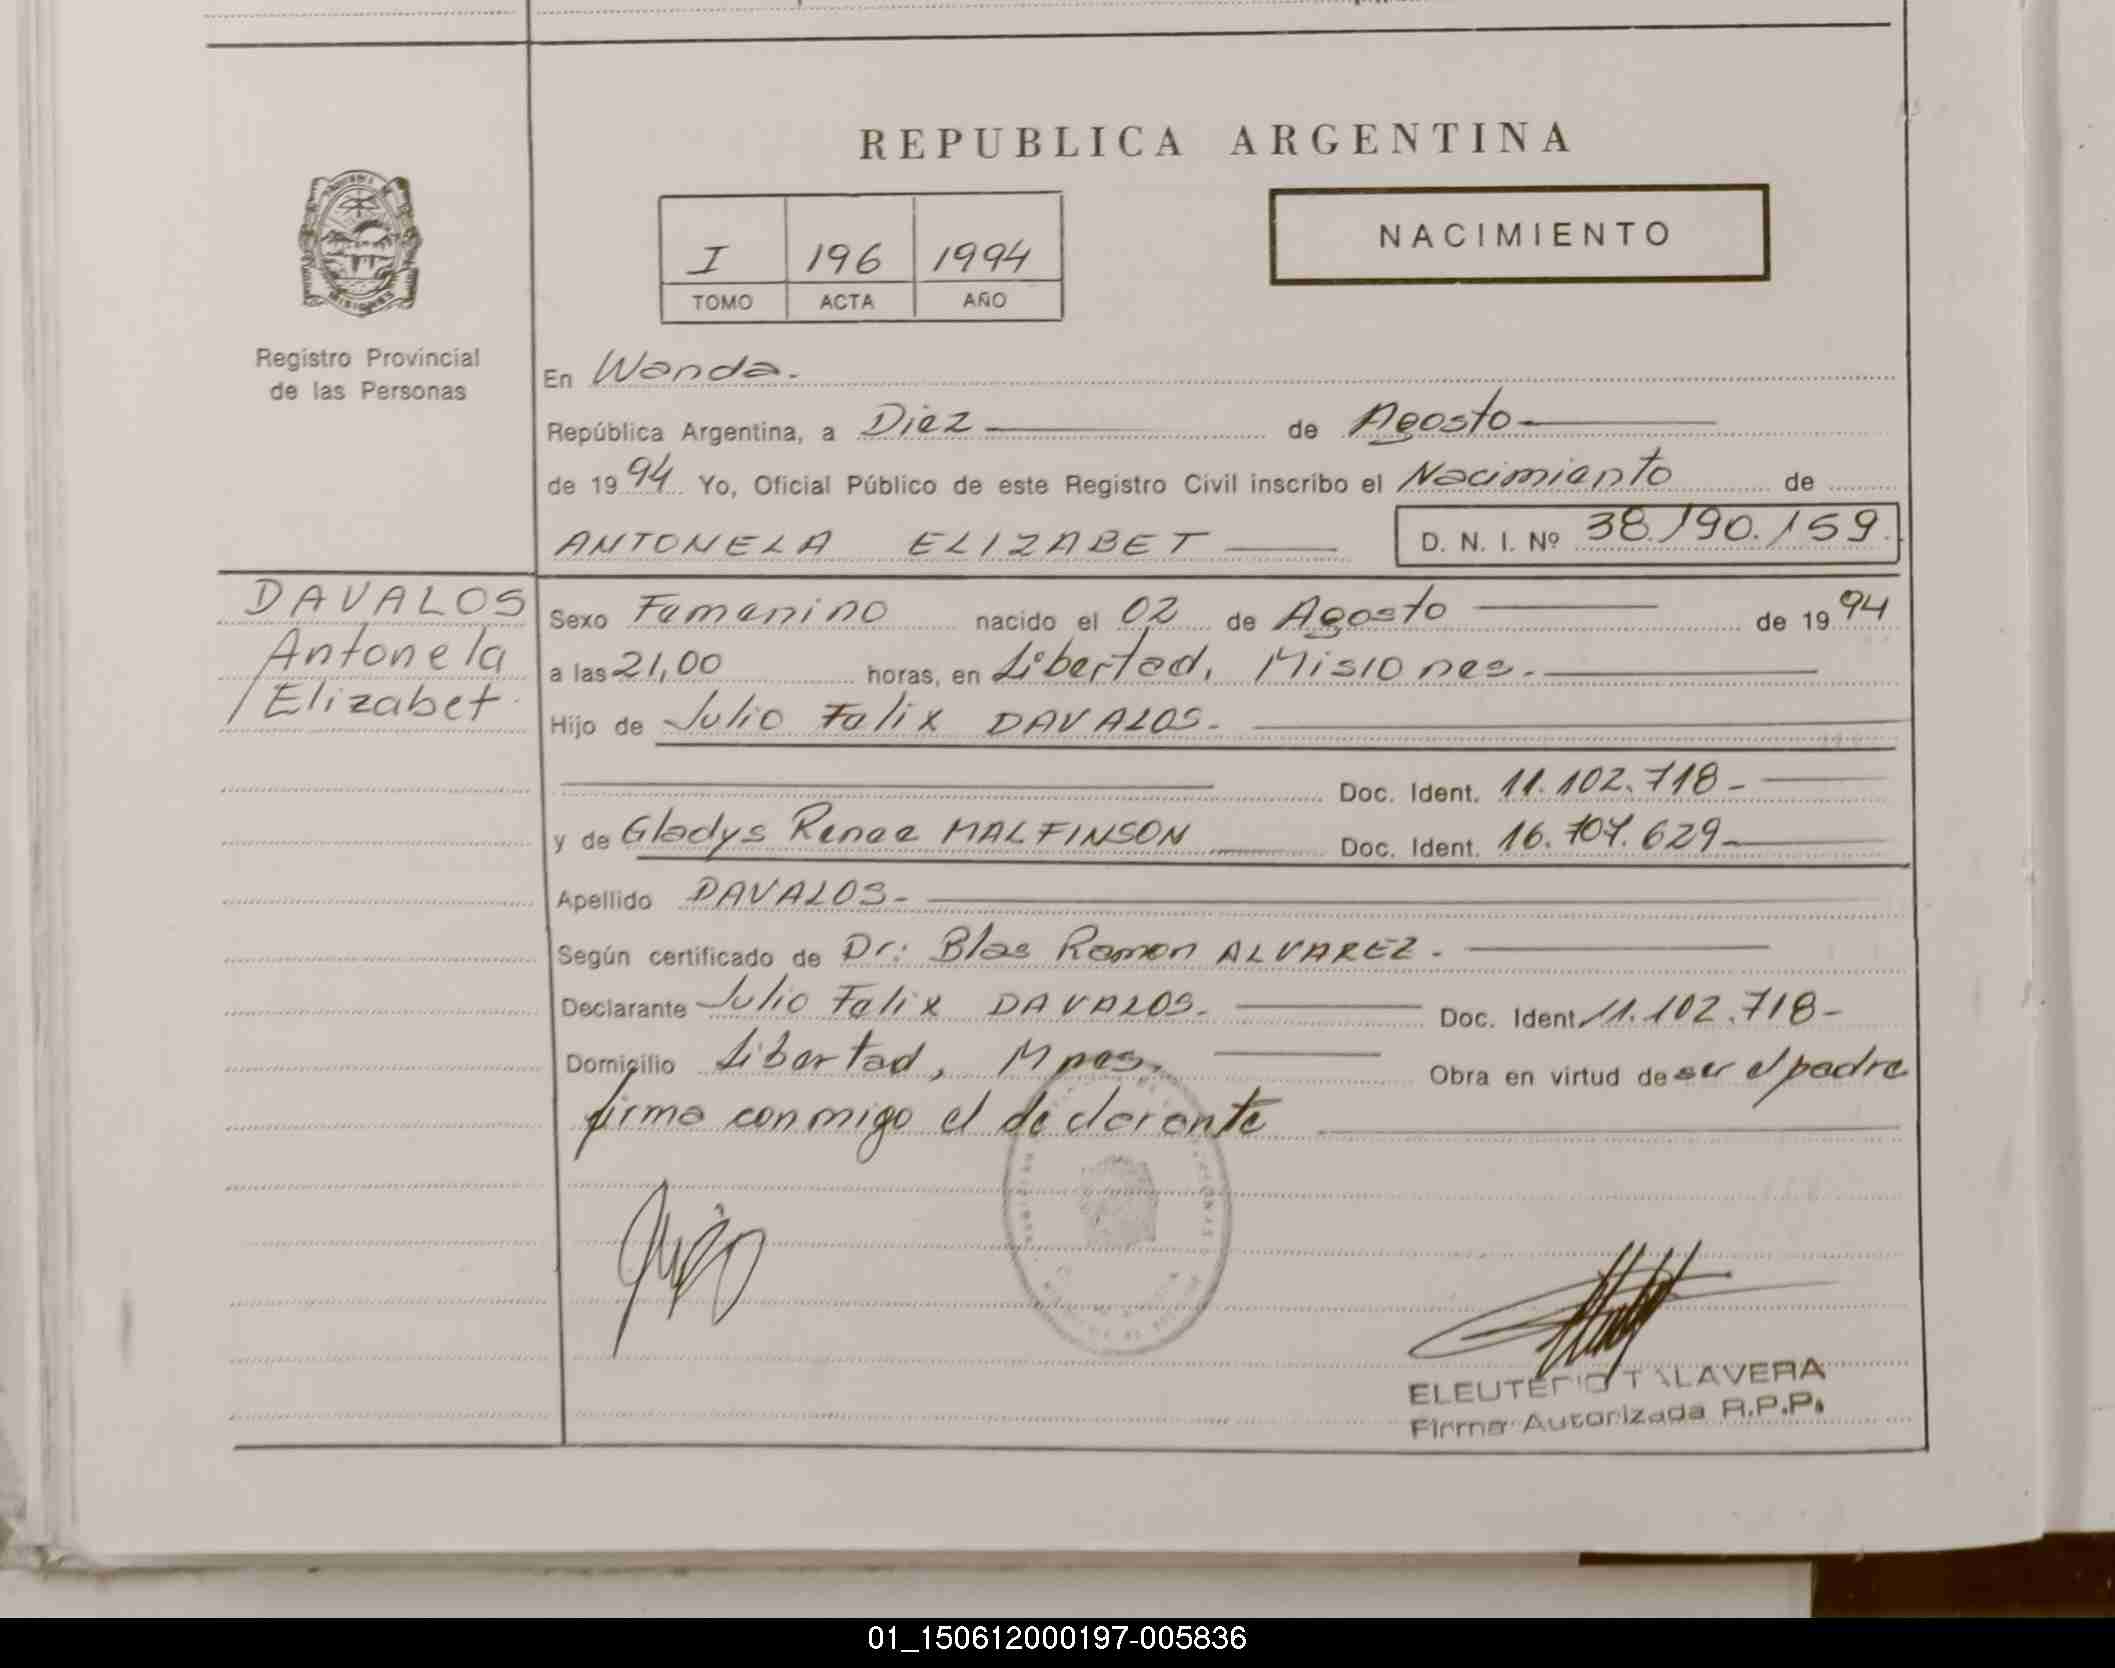 REPUBLICA ARGENTINA
I 196 1994
TOMO ACTA AÑO
NACIMIENTO
MISIONES
Registro Provincial
de las Personas
En Wanda.
República Argentina, a Diez de Agosto
de 1994 Yo, Oficial Público de este Registro Civil inscribo el Nacimiento de
ANTONELA ELIZABET D. N. I. Nº 38.190.159.
DAVALOS
Antonela
Elizabet.
Sexo Femenino nacido el 02 de Agosto de 1994
a las 21,00 horas, en Libertad, Misiones.
Hijo de Julio Felix DAVALOS.
Doc. Ident. 11.102.718-
y de Gladys Renee MALFINSON Doc. Ident. 16.707.629-
Apellido DAVALOS-
Según certificado de Dr: Blas Ramon ALVAREZ.
Declarante Julio Felix DAVALOS. Doc. Ident. 11.102.718-
Domicilio Libertad, Mnes. Obra en virtud de ser el padre
firma conmigo el declarante
ELEUTERIO TALAVERA
Firma Autorizada R.P.P.
01_150612000197-005836